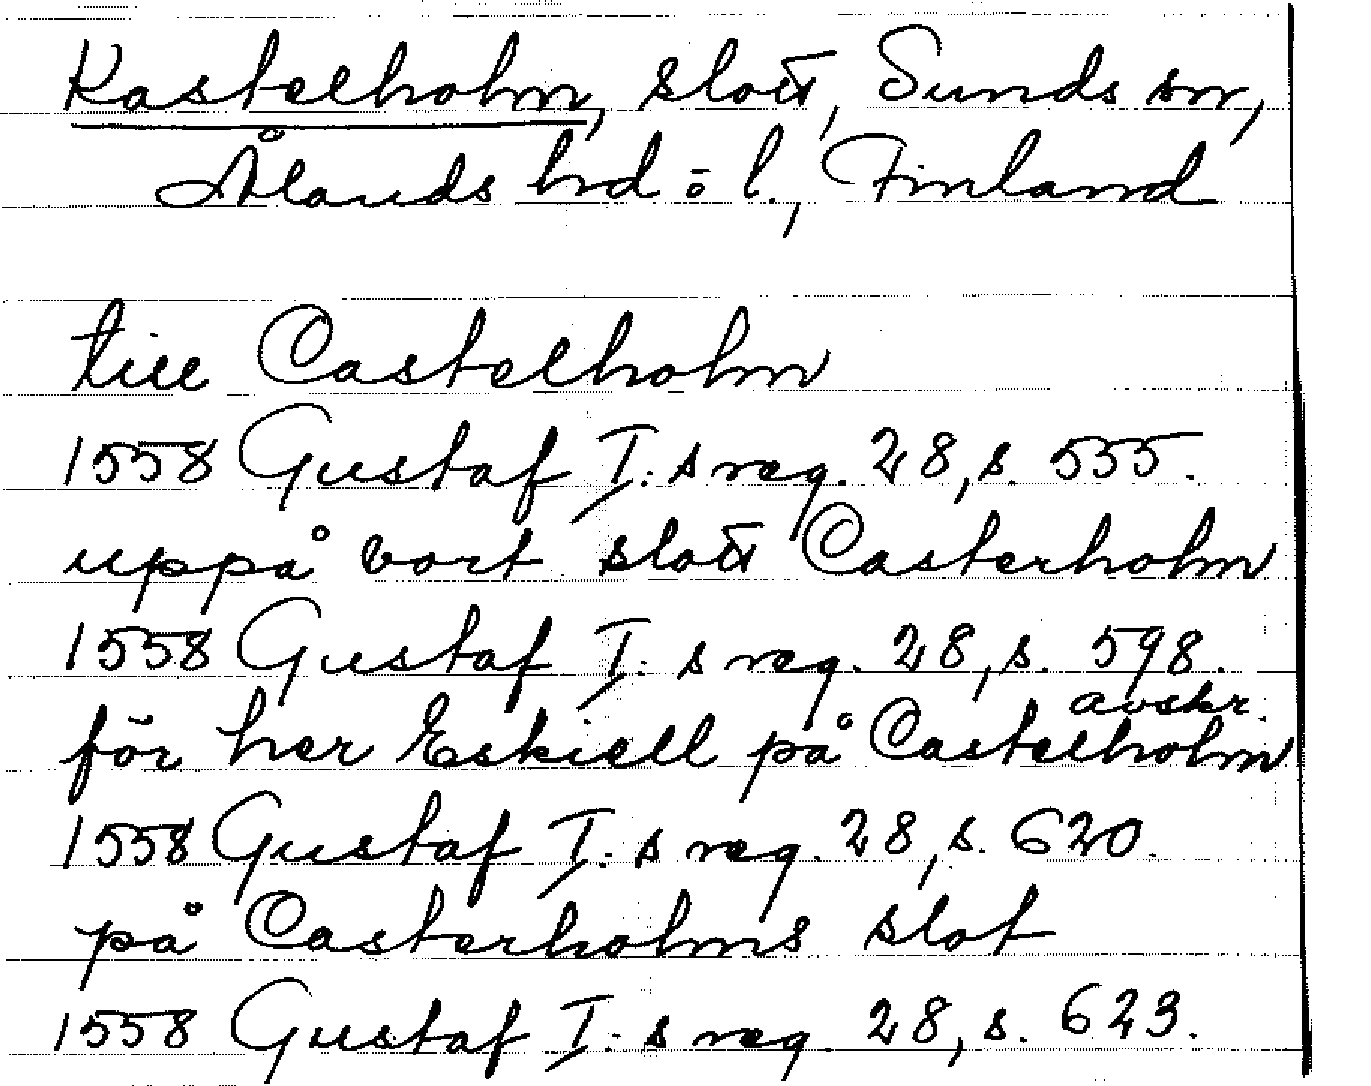 Kastelholm, slott, Sunds sn,
Ålands hd o l., Finland
till Castelholm
1558 Gustaf I:s reg. 28, s. 555.
uppå vort slott Casterholm
1558 Gustaf I:s reg. 28, s. 598.
avskr.
för her Eskiell på Castelholm
1558 Gustaf I:s reg. 28, s. 620.
på Casterholms slot
1558 Gustaf I:s reg. 28, s. 623.